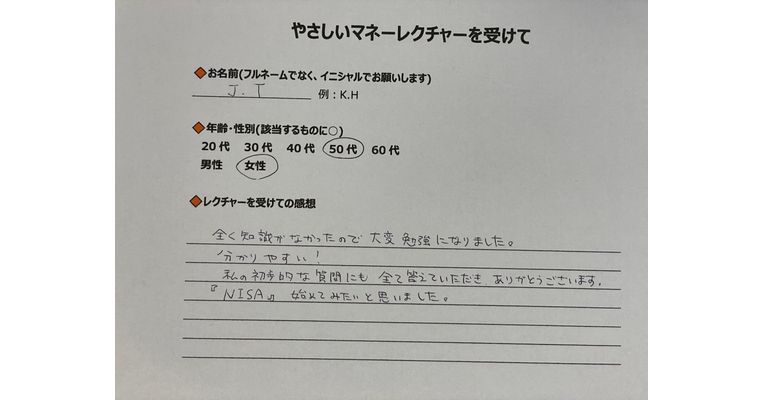 やさしいマネーレクチャーを受けて
◆お名前(フルネームでなく、イニシャルでお願いします)
J.T 例：K.H
◆年齢・性別(該当するものに○)
20代 30代 40代 50代 60代
男性 女性
◆レクチャーを受けての感想
全く知識がなかったので 大変 勉強になりました。
分かりやすい!
私の初歩的な質問にも 全て答えていただき ありがとうございます。
『NISA』 始めてみたいと思いました。